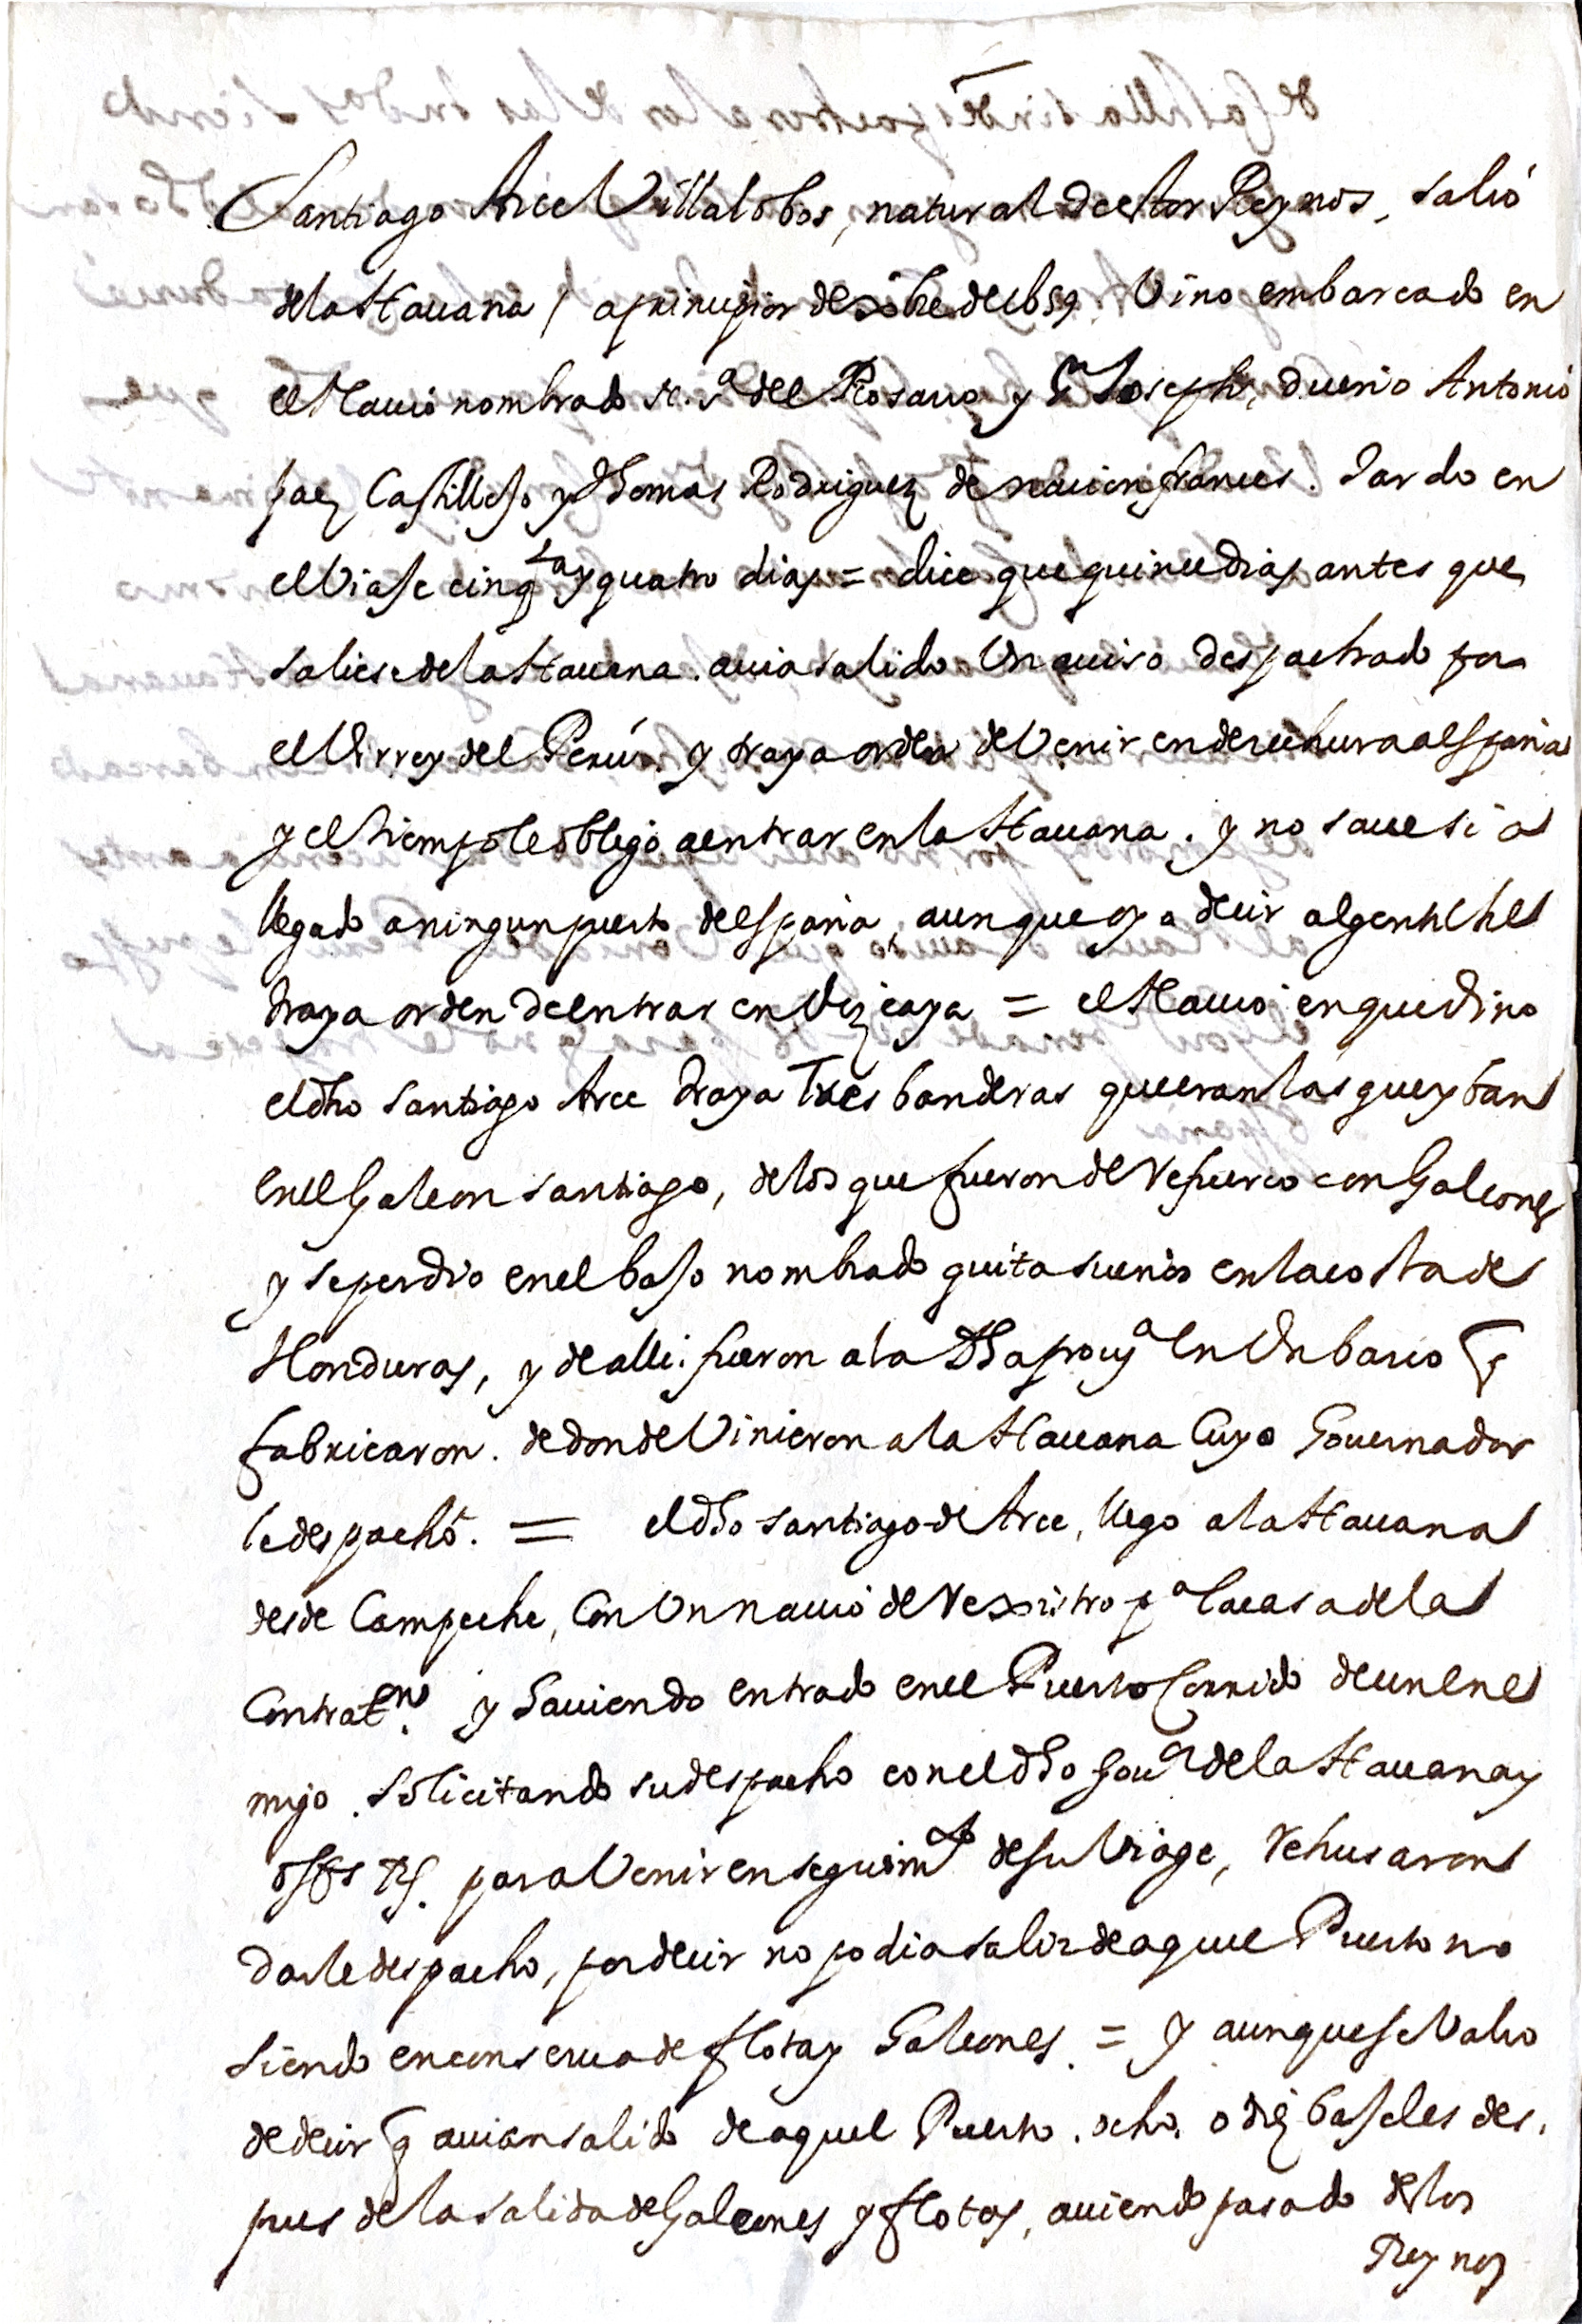 Santiago Arce Villalobos, natural de estos Reynos, salio
de la Hauana / a principios de xbre de 1659 Vino embarcado en
el Nauio nombrado N. Sª del Rosario y Sn Joseph, dueño Antonio
paez Castillejo y Thomas Rodriguez de nacion frances. Tardo en
el Viaje cinqta y quatro dias = dice que quince dias antes que
saliese de la Hauana. auia salido Un auiso despachado por
el Virrey del Perú. y traya orden de Venir en derechura a españa
y el tiempo le obligó a entrar en la Hauana. y no saue si a
llegado a ningun puerto de españa, aunque oya decir al gentilhe
traya orden de entrar en Vizcaya = el Nauio en que Vino
el dho Santiago Arce traya Tres banderas que eran las que yban
en el Galeon santiago, de los que fueron de refuerco con Galeones
y se perdio en el bajo nombrado quita sueño en la costa de
Honduras, y de alli fueron a la dha prouª en Un barco q
fabricaron. de donde Vinieron a la Hauana Cuyo Gouernador
le despachó. = el dho santiago de Arce, llego a la Hauana
desde Campeche, Con Un nauio de rexistro pª la casa de la
Contraton. y hauiendo entrado en el Puerto Corrido de un ene
migo. Solicitando su despacho con el dho Gour de la Hauana y
offes Rs. para Venir en seguimto de su Viage, rehusaron
darle despacho, por decir no podia salir de aquel Puerto no
siendo en conserua de flota y Galeones. = y aunque se Valio
de decir q auian salido de aquel Puerto. ocho. o diez bajeles des.
pues de la salida de Galeones y flotas, auiendo pasado destos
Reynos